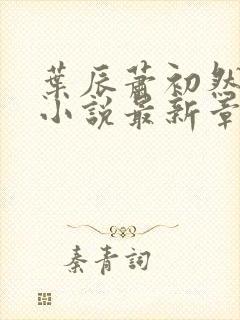 葉辰蕭初然
小說最新章
秦青詞